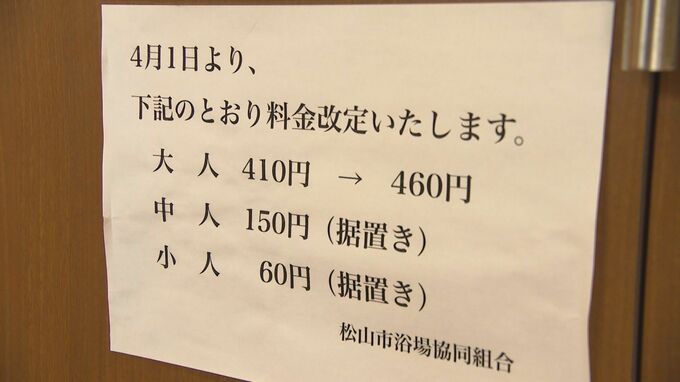 4月1日より、
下記のとおり料金改定いたします。
大人 410円 → 460円
中人 150円(据置き)
小人 60円(据置き)
松山市浴場協同組合